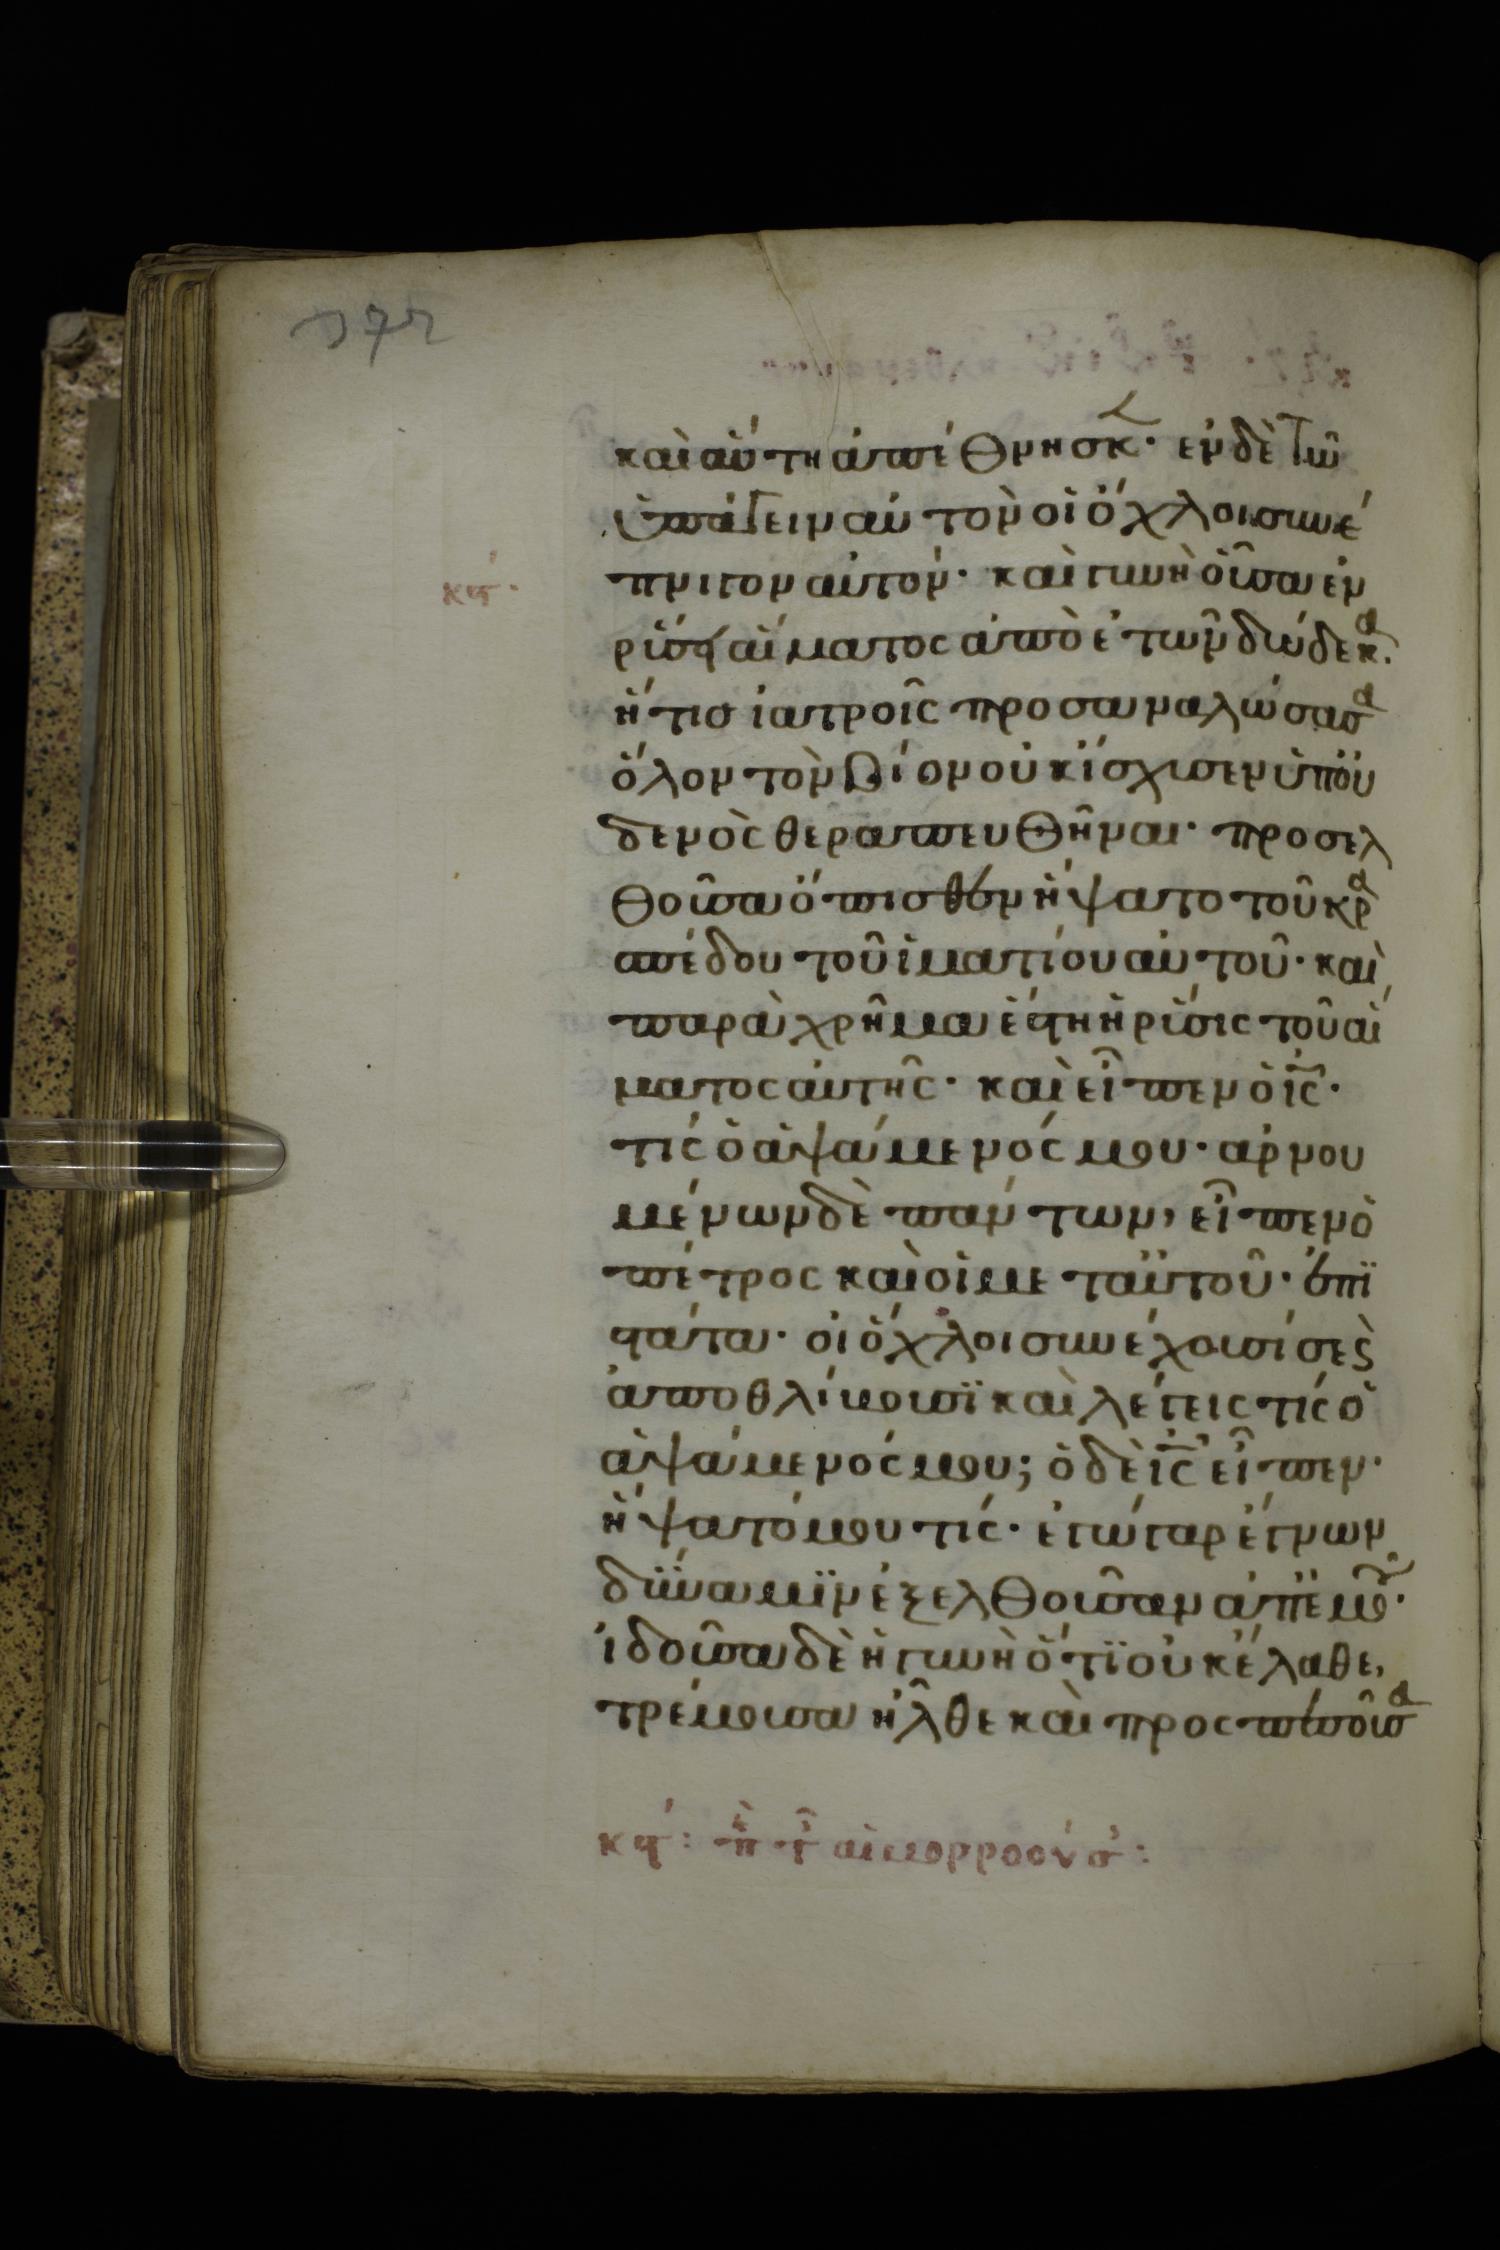 καὶ αὕτη ἀπέθνησκεν· ἐν δὲ τῶ
ὑπάγειν αὐτὸν οἱ ὄχλοι συνέ
πνιγον αὐτόν· καὶ γυνὴ οὖσα ἐν
κστ·
ῥύσει αἵματος ἀπὸ ἐτῶν δώδεκα·
ἥτις ἰατροῖς προσαναλώσασα
ὅλον τὸν βίον οὐκ ἴσχυσεν ὑπ' οὐ
δενὸς θεραπευθῆναι· προσελ
θοῦσα ὄπισθεν ἥψατο τοῦ κρα
σπέδου τοῦ ἱματίου αὐτοῦ· καὶ
παρὰ χρῆμα ἔστη ἡ ῥύσις τοῦ αἵ
ματος αὐτῆς· καὶ εἶπεν ὁ ἰς·
τίς ὁ ἁψάμενός μου· ἀρνου
μένων δὲ πάντων, εἶπεν ὁ
πέτρος καὶ οἱ μετ' αὐτοῦ· ἐπι
στάτα· οἱ ὄχλοι συνέχουσί σε καὶ
ἀποθλίβουσι καὶ λέγεις τίς ὁ
ἁψάμενός μου; ὁ δὲ ἰς εἶπεν·
ἥψατό μου τίς· ἐγὼ γὰρ ἔγνων
δύναμιν ἐξελθοῦσαν ἀπ' ἐμοῦ·
ἰδοῦσα δὲ ἡ γυνὴ ὅτι οὐκ ἔλαθε,
τρέμουσα ἦλθε καὶ προσπεσοῦσα
κστ: περὶ τῆς αἱμορροούσης: